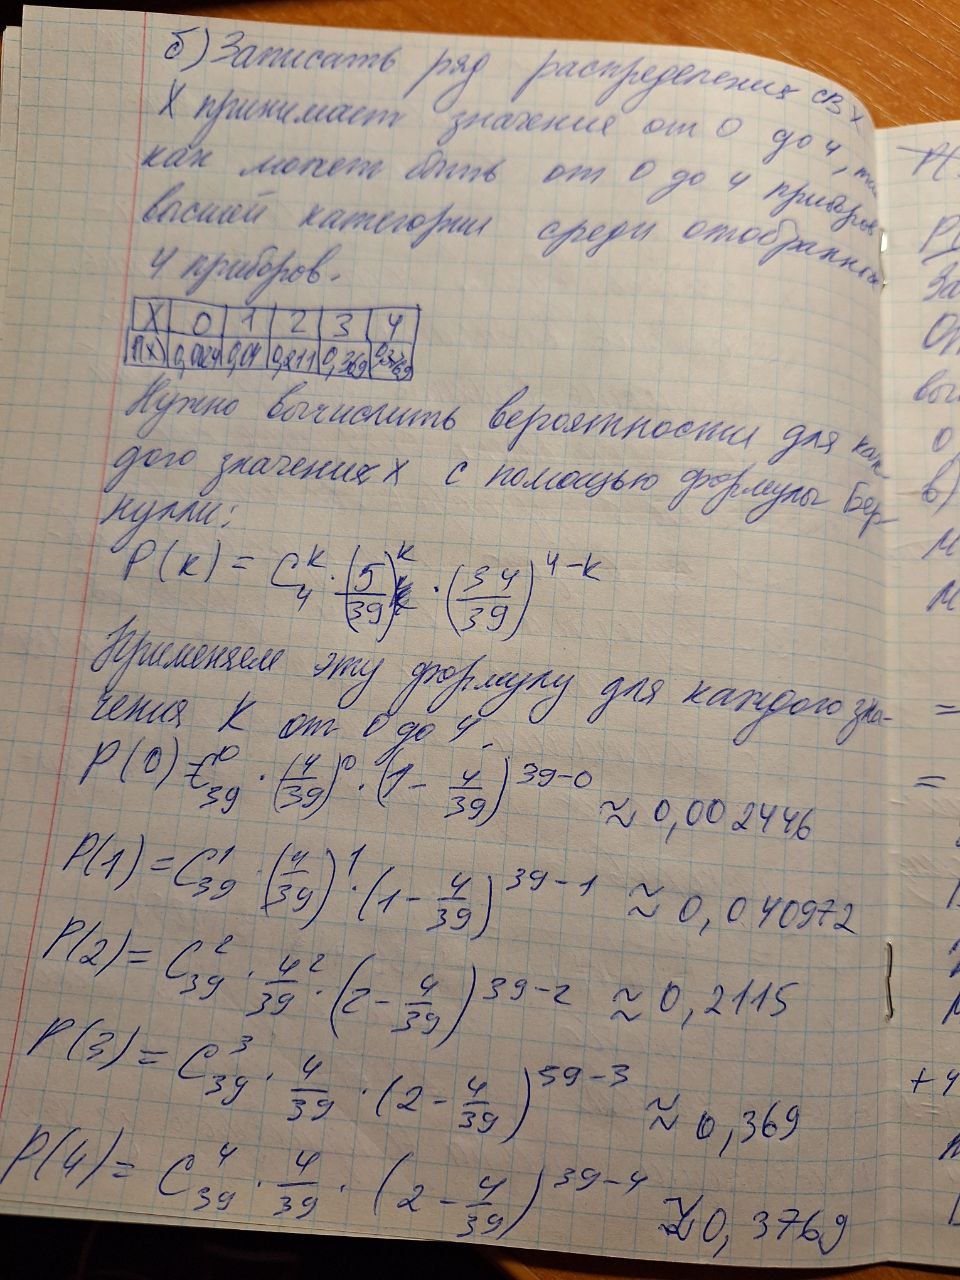 б) Записать ряд распределения СВ X
X принимает значения от 0 до 4, так
как может быть от 0 до 4 приборов
высшей категории среди отобранных
4 приборов.
X 0 1 2 3 4
P(x) 0,0024 0,04 0,211 0,369 0,3769
Нужно вычислить вероятности для каж-
дого значения X с помощью формулы Бер-
нулли:
P(k) = C₄ᵏ · (5/39)ᵏ · (34/39)⁴⁻ᵏ
Применяем эту формулу для каждого зна-
чения k от 0 до 4.
P(0) = C₃₉⁰ · (4/39)⁰ · (1 - 4/39)³⁹⁻⁰ ≈ 0,002446
P(1) = C₃₉¹ · (4/39)¹ · (1 - 4/39)³⁹⁻¹ ≈ 0,040972
P(2) = C₃₉² · 4/39² · (2 - 4/39)³⁹⁻² ≈ 0,2115
P(3) = C₃₉³ · 4/39 · (2 - 4/39)³⁹⁻³ ≈ 0,369
P(4) = C₃₉⁴ · 4/39 · (2 - 4/39)³⁹⁻⁴ ≈ 0,3769